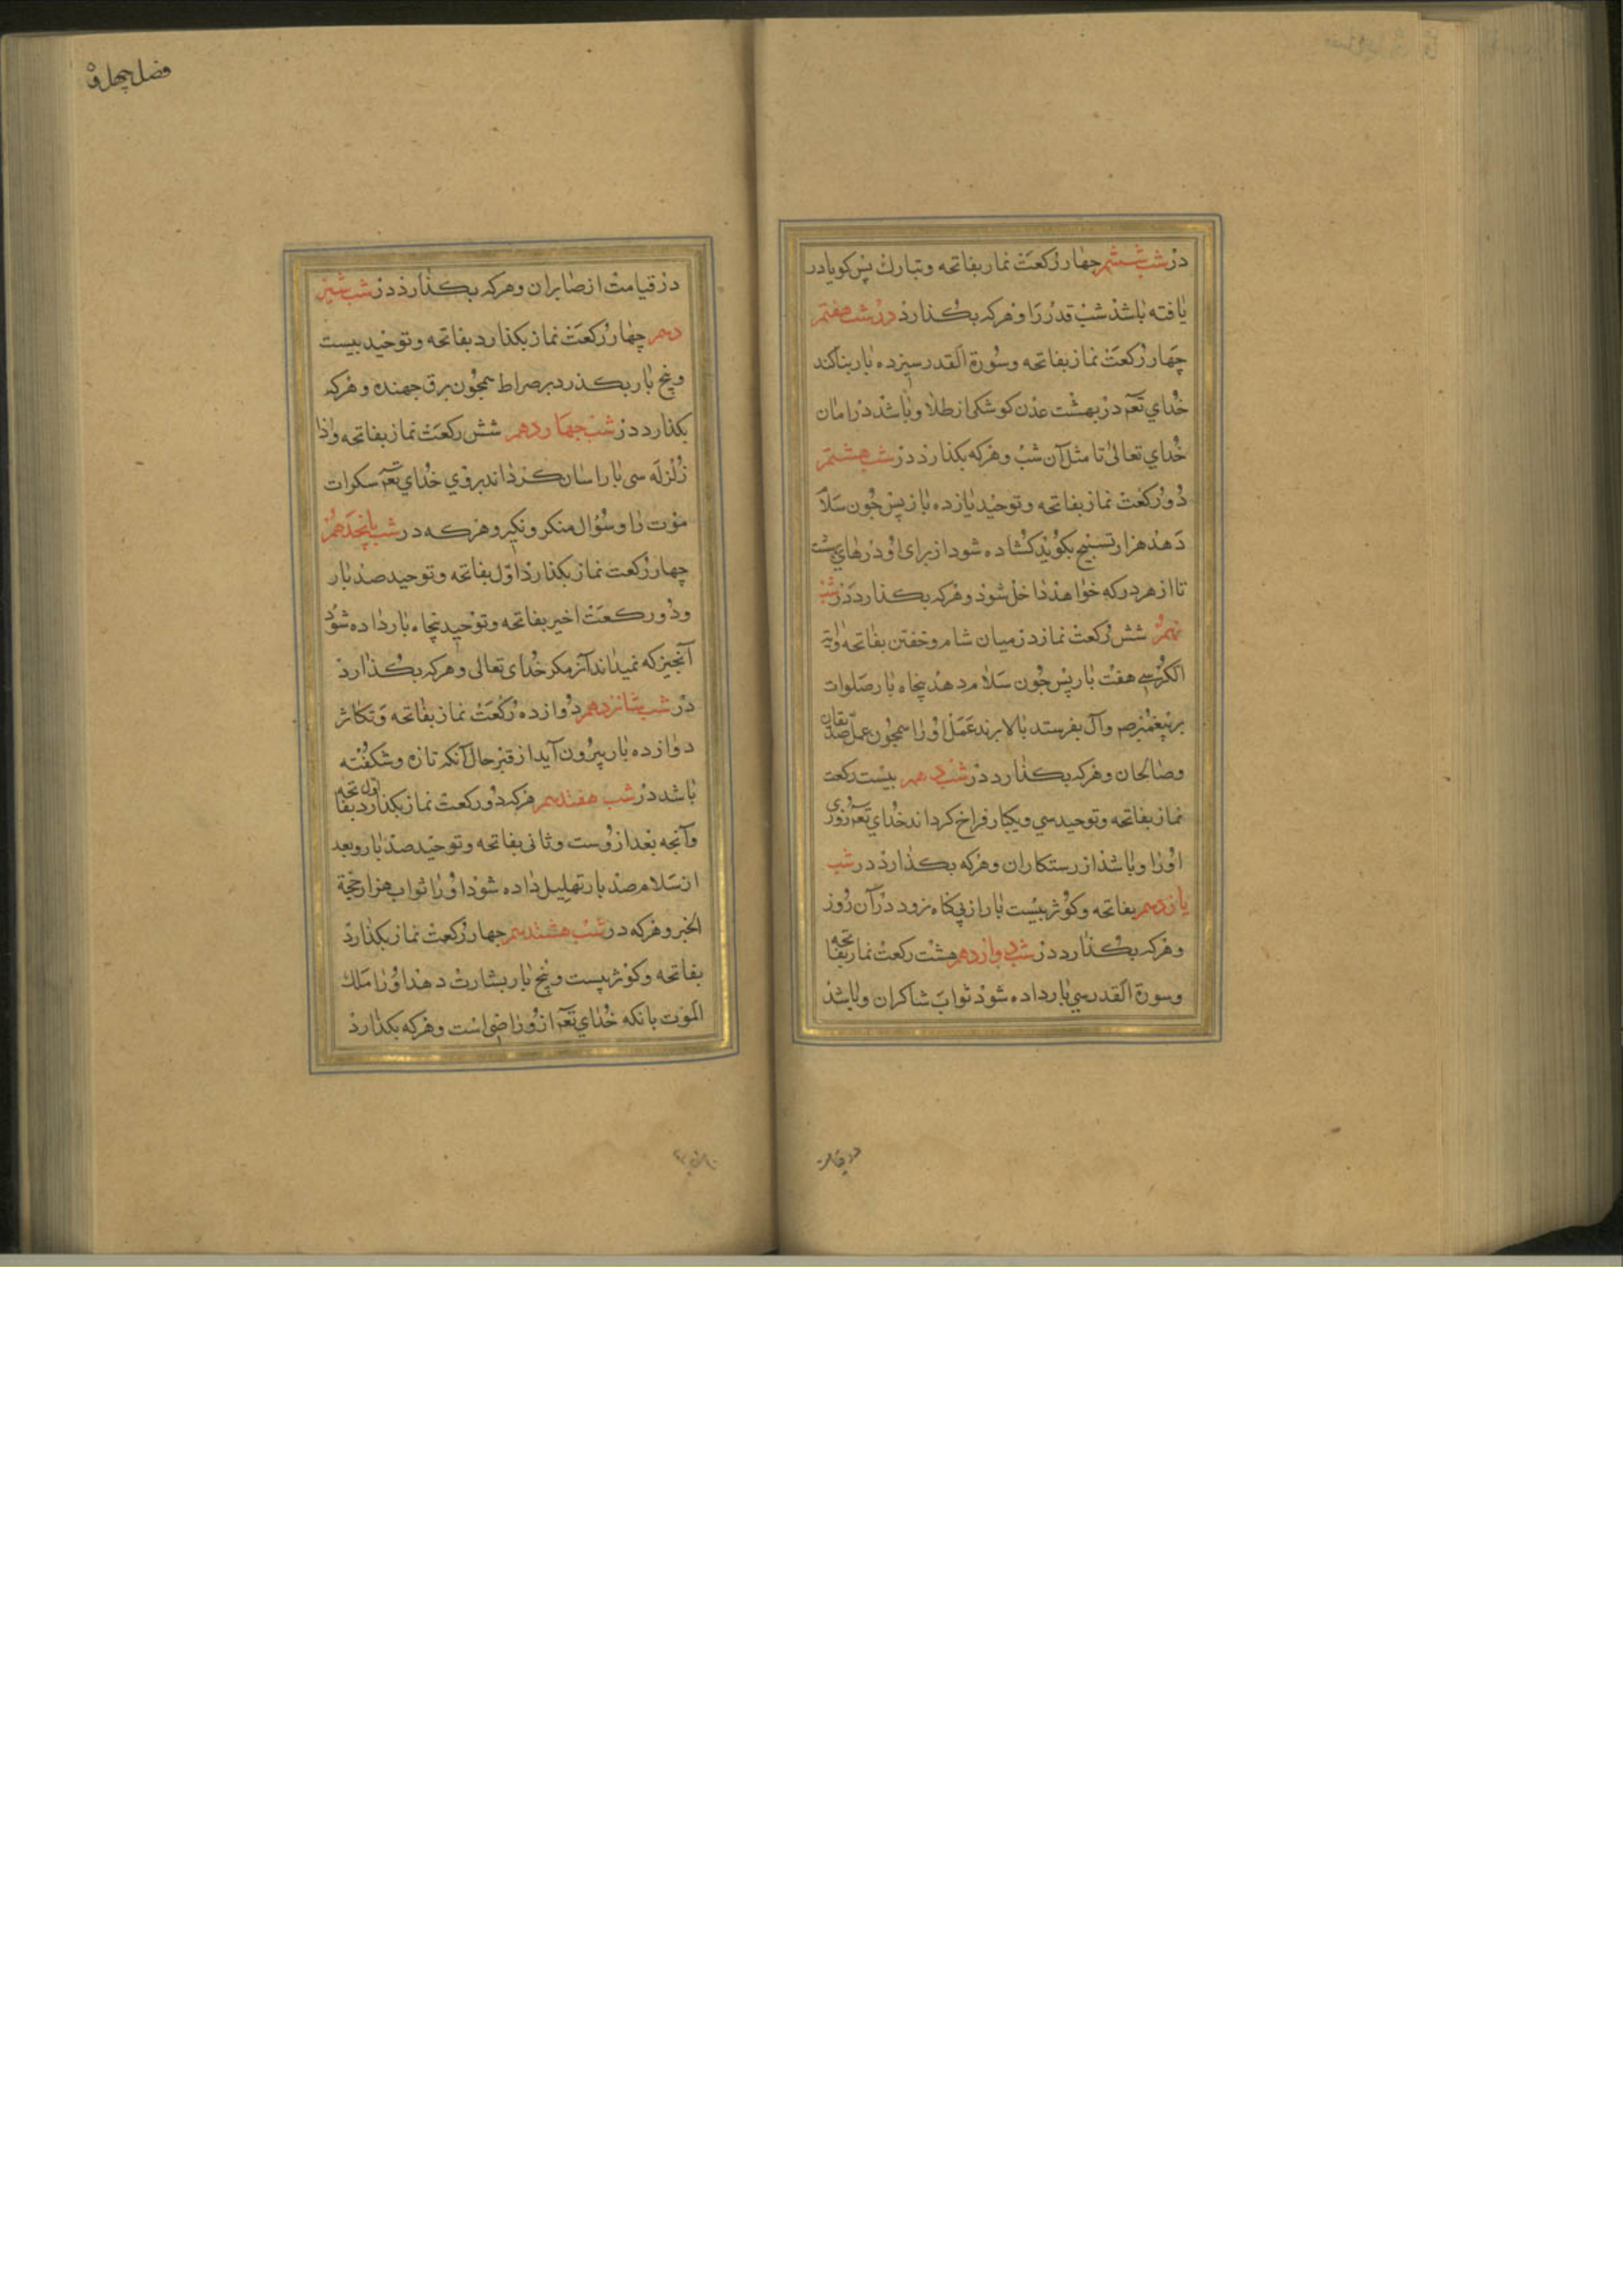 در شب ششم چهار ركعت نماز بفاتحه وتبارك پس كويا در
يافته باشد شب قدر را وهركه بكذارد در شب هفتم
چهار ركعت نماز بفاتحه وسورة القدر سيزده بار بنا كند
خداي تعم در بهشت عدن كوشكى از طلا وباشد در امان
خداي تعالى تا مثل آن شب وهركه بكذارد در شب هشتم
دو ركعت نماز بفاتحه وتوحيد يازده بار پس چون سلام
دهد هزار تسبيح بكويد كشاده شود از براى او درهاي بهشت
تا از هر در كه خواهد داخل شود وهركه بكذارد در شب
نهم شش ركعت نماز در ميان شام وخفتن بفاتحه وآية
الكرسي هفت بار پس چون سلام دهد پنجاه بار صلوات
بر پيغمبر صم وآل بفرستد بالا برند عمل او را همچون عمل صديقان
وصالحان وهركه بكذارد در شب دهم بيست ركعت
نماز بفاتحه وتوحيد سي ويكبار فراخ كرداند خداي تعم روزي
او را وباشد از رستكاران وهركه بكذارد در شب
يازدهم بفاتحه وكوثر بيست بار از پي كناه نرود در آن روز
وهركه بكذارد در شب دوازدهم هشت ركعت نماز بفاتحه
وسورة القدر سي بار داده شود ثواب شاكران وباشد
در قيامت
فضل چهل و
در قيامت از صابران وهركه بكذارد در شب سيز
دهم چهار ركعت نماز بكذارد بفاتحه وتوحيد بيست
وپنج بار بكذرد بر صراط همچون برق جهنده وهركه
بكذارد در شب چهاردهم شش ركعت نماز بفاتحه واذا
زلزله سى بار اسان كرداند بروي خداي تعم سكرات
موت را وسؤال منكر ونكير وهركه در شب پانجدهم
چهار ركعت نماز بكذارد اول بفاتحه وتوحيد صد بار
ودو ركعت اخير بفاتحه وتوحيد پنجاه بار داده شود
آنچيز كه نميداند آنر مكر خداى تعالى وهركه بكذارد
در شب شانزدهم دوازده ركعت نماز بفاتحه وتكاثر
دوازده بار بيرون آيد از قبر حال آنكه تازه وشكفته
باشد در شب هفدهم هركه دو ركعت نماز بكذارد اول بفاتحه
وآنچه بعد از وست وثانى بفاتحه وتوحيد صد بار وبعد
از سلام صد بار تهليل داده شود او را ثواب هزار حجة
الخبر وهركه در شب هشتدهم چهار ركعت نماز بكذارد
بفاتحه وكوثر بيست وپنج بار بشارت دهد او را ملك
الموت بانكه خداي تعم ازو راضى است وهركه بكذارد